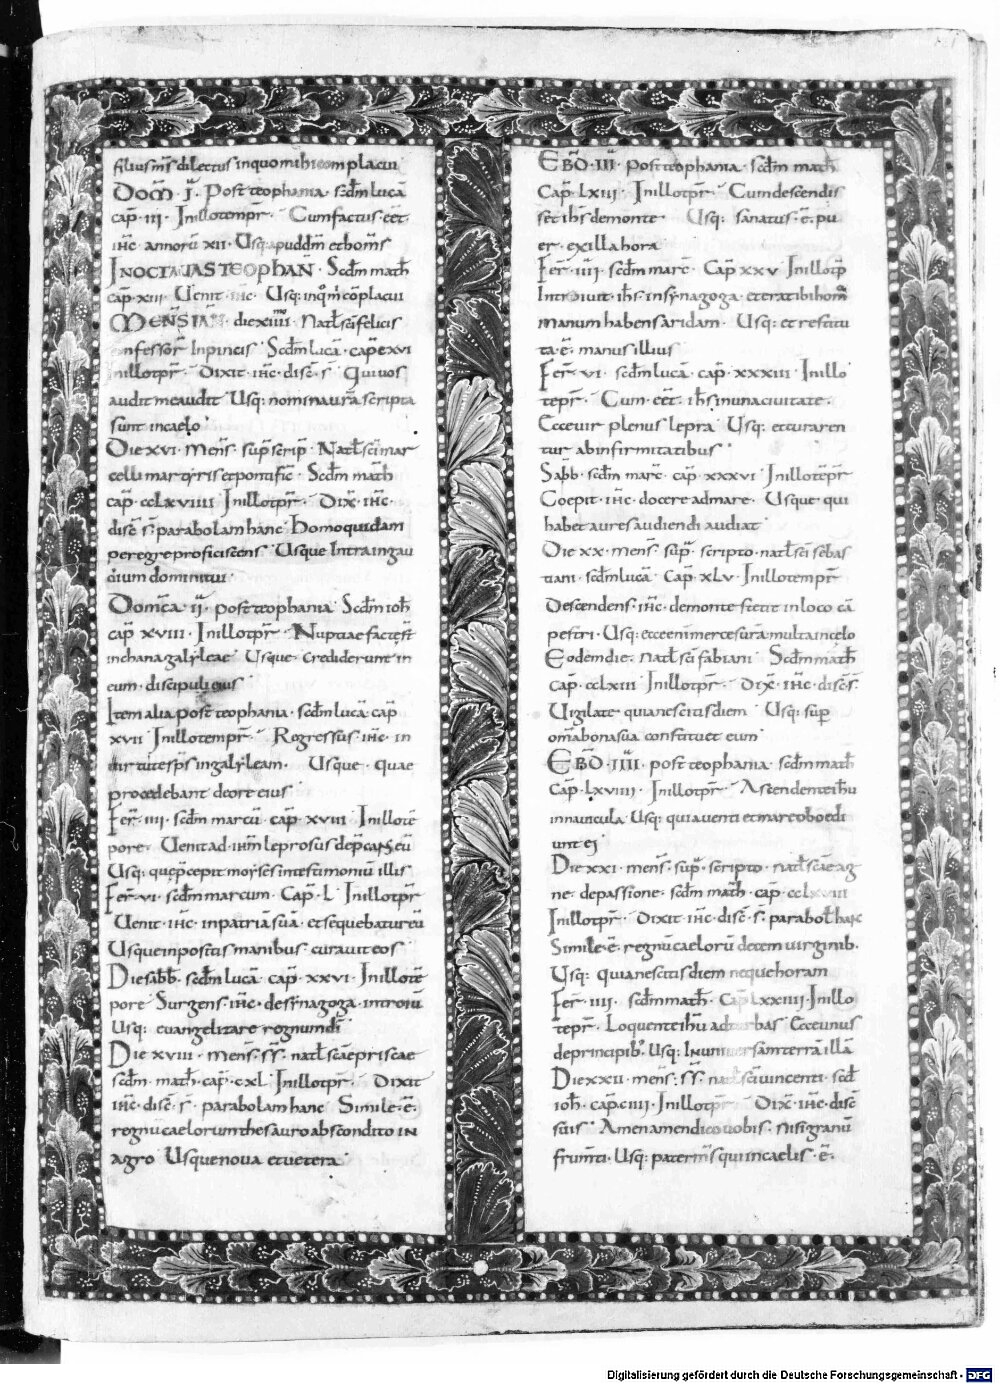 filius mīs dilectus inquomihi complacui
Dom̄ · I · Post teophania · scd̄m lucā
cap̄ · iii · Inillotempr̄ · Cumfactus · eēt ·
ihc̄ · annorū xii · Usq: apud dm̄ ethom̄s
Inoctauas teophan̄ · Scd̄m math̄
cap̄ · xiii · Uenit · ihc̄ · Usq: inqm̄ cōplacui
Mens̄ ian̄ · die xiiii mo · Natl̄ scī felicis
confessor̄ inpincis · Scd̄m lucā · cap̄ cxvi
Inillotpr̄ · Dixit · ihc̄ · disc̄ · s · Qui uos
audit me audit Usq: nomina ur̄a scripta
sunt in caelo
Die xvi · mens̄ · sup̄ scrip̄ · Natl̄ scī mar
celli martyris et pontific̄ · Scd̄m math̄
cap̄ · cclxviiii Inillotpr̄ · Dix̄ · ihc̄ ·
disc̄ s̄ · parabolam hanc Homo quidam
peregre proficiscens · Usque Intra in gau
dium domini tui ·
Domc̄a · ii · post teophania Scd̄m ioh̄
cap̄ xviii · Inillotpr̄ · Nuptiae factē st̄
inchana galyleae · Usque · Crediderunt in
eum · discipuli eius
Item alia post teophania · scd̄m lucā · cap̄
xvii Inillotempr̄ · Regressus · ihc̄ · in
uirtute sp̄s ingalyleam · Usque · quae
procedebant de ore eius
Fer̄ · iiii · scd̄m marcū · cap̄ · xviii Inillotē
pore · Uenit ad · ihm̄ leprosus dep̄cans eū
Usq: quē p̄cepit moyses intestimoniū illis
Fer̄ · vi · scd̄m marcum · Cap̄ · L · Inillotpr̄
Uenit · ihc̄ · inpatriā suā · et sequebatur eū
Usque inpositis manibus · curauit eos
Die sabb̄ · scd̄m lucā · cap̄ · xxvi · Inillotē
pore Surgens · ihc̄ · de synagoga · introiū
Usq: euangelizare regnum dī
Die xviii · mens̄ · s̄s · natl̄ scāe priscae
scd̄m · math̄ · cap̄ · cxl Inillotpr̄ · Dixit
ihc̄ · disc̄ · s̄ · parabolam hanc Simile · ē ·
regnū caelorum thesauro abscondito in
agro Usque noua et uetera
Ebd̄ · iii · post teophania · scd̄m math̄
Cap̄ · lxiii · Inillotpr̄ · Cum descendis
set ihs̄ de monte · Usq: sanatus · ē · pu
er · ex illa hora
Fer̄ · iiii · scd̄m marc̄ · Cap̄ xxv Inillotp̄
Introiuit · ihs̄ · insynagoga · et erat ibi homo
manum habens aridam · Usq: et restitu
ta · ē · manus illius
Fer̄ vi · scd̄m lucā · cap̄ · xxxiii · Inillo
tepr̄ · Cum · eēt · ihs̄ inuna ciuitate ·
Ecce uir plenus lepra Usq: et curaren
tur ab infirmitatibus
Sabb̄ · scd̄m marc̄ · cap̄ xxxvi · Inillotēpr̄
Coepit · ihc̄ · docere ad mare · Usque qui
habet aures audiendi audiat
Die xx · mens̄ · sup̄ · scripto · natl̄ scī sebas
tiani · scd̄m lucā · Cap̄ · xlv · Inillotempr̄
Descendens · ihc̄ · de monte stetit in loco cā
pestri · Usq: ecce enim merces ur̄a multa in celo
Eodem die · natl̄ scī fabiani · Scd̄m math̄
Cap̄ · cclxiii Inillotpr̄ · Dix̄ · ihc̄ · disc̄ s̄ ·
Uigilate quia nescitis diem Usq: sup̄
om̄a bona sua constituet eum
Ebd̄ · iiii · post teophania · scd̄m math̄
Cap̄ · lxviiii · Inillotpr̄ · Ascendente ihū
in nauicula Usq: quia uenti et mare oboedi
unt ei
Die xxi · mens̄ · sup̄ · scripto · natl̄ scāe ag
ne · de passione · scd̄m math̄ · cap̄ · cclxviii
Inillotpr̄ · Dixit ihc̄ · disc̄ · s̄ · parabol̄ hanc
Simile · ē · regnū caelorū decem uirginib ·
Usq: quia nescitis diem neque horam
Fer̄ · iiii · scd̄m math̄ · Cap̄ lxxiiii · Inillo
tēpr̄ · Loquente ihū ad turbas Ecce unus
de principib: Usq: In uniuersam terrā illā
Die xxii · mens̄ · s̄s · natl̄ scī uincenti · scd̄
ioh̄ · cap̄ ciiii · Inillotpr̄ · Dix̄ · ihc̄ · disc̄
suis Amen amen dico uobis · nisi granū
frum̄ti · Usq: pater m̄s qui in caelis · ē ·
Digitalisierung gefördert durch die Deutsche Forschungsgemeinschaft - DFG